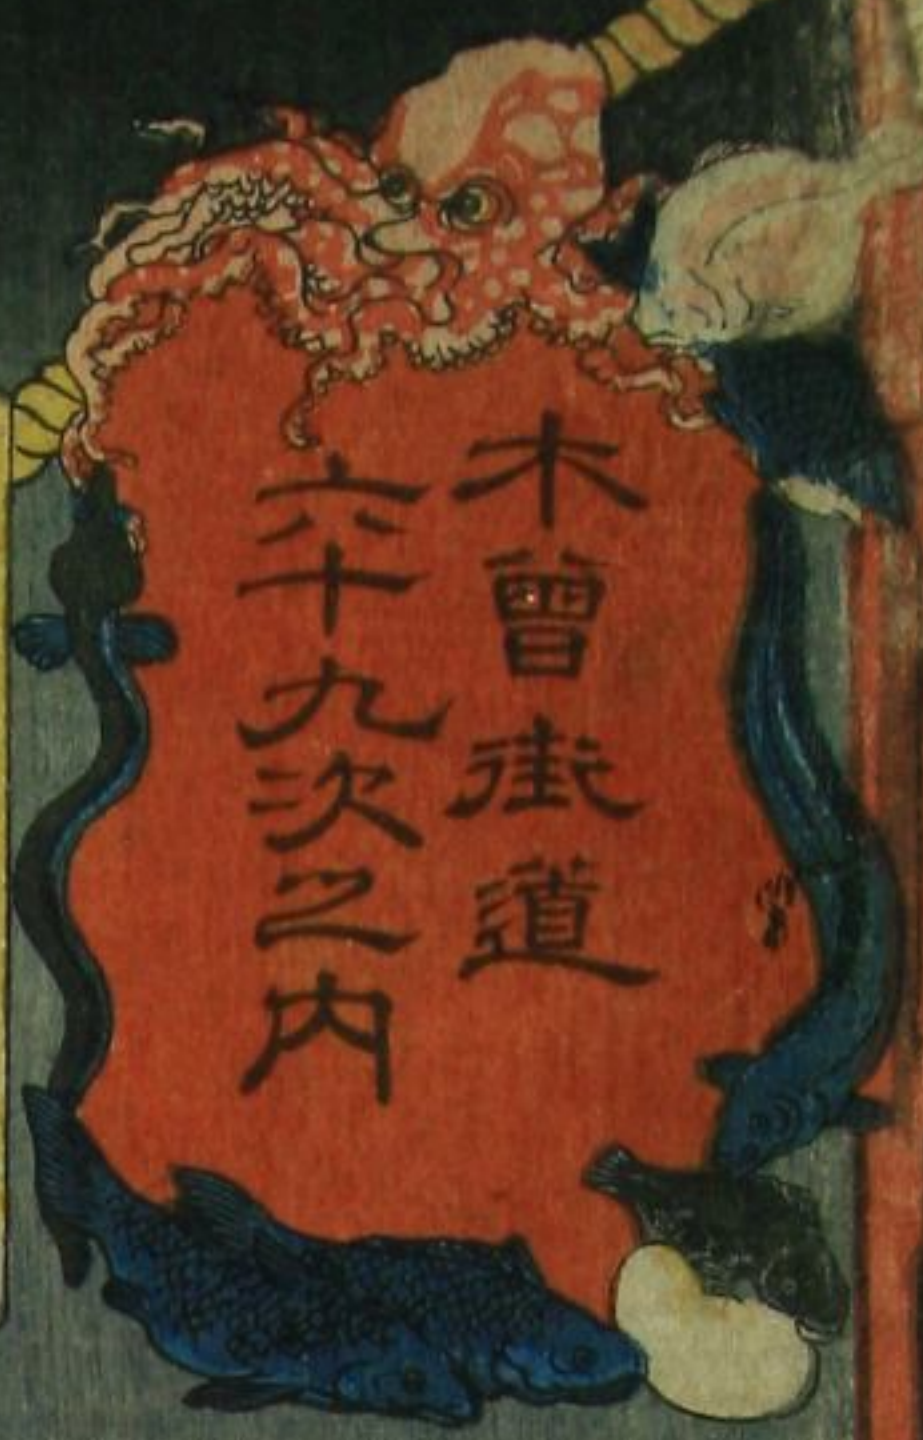 木曽街道
六十九次之内